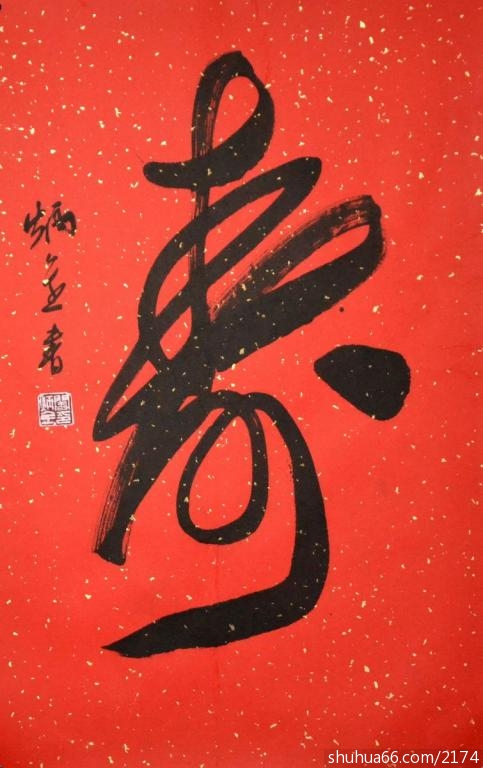 壽
炳全書
shuhua66.com/2174